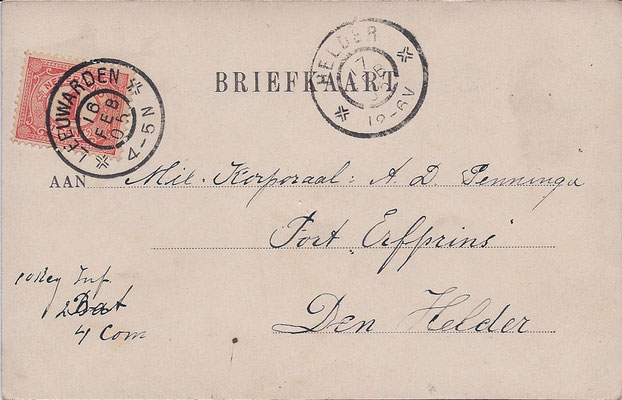 BRIEFKAART
LEEUWARDEN
16
FEB
05
4-5N
HELDER
12-6V
AAN Mil. Korporaal: A. D. Penninga
Fort "Erfprins"
Den Helder
10 Reg Inf
2 Bat
4 Com